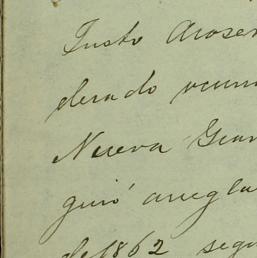 Justo Arosem
derado
Nueva Gran
guió arregla
de 1862 segú